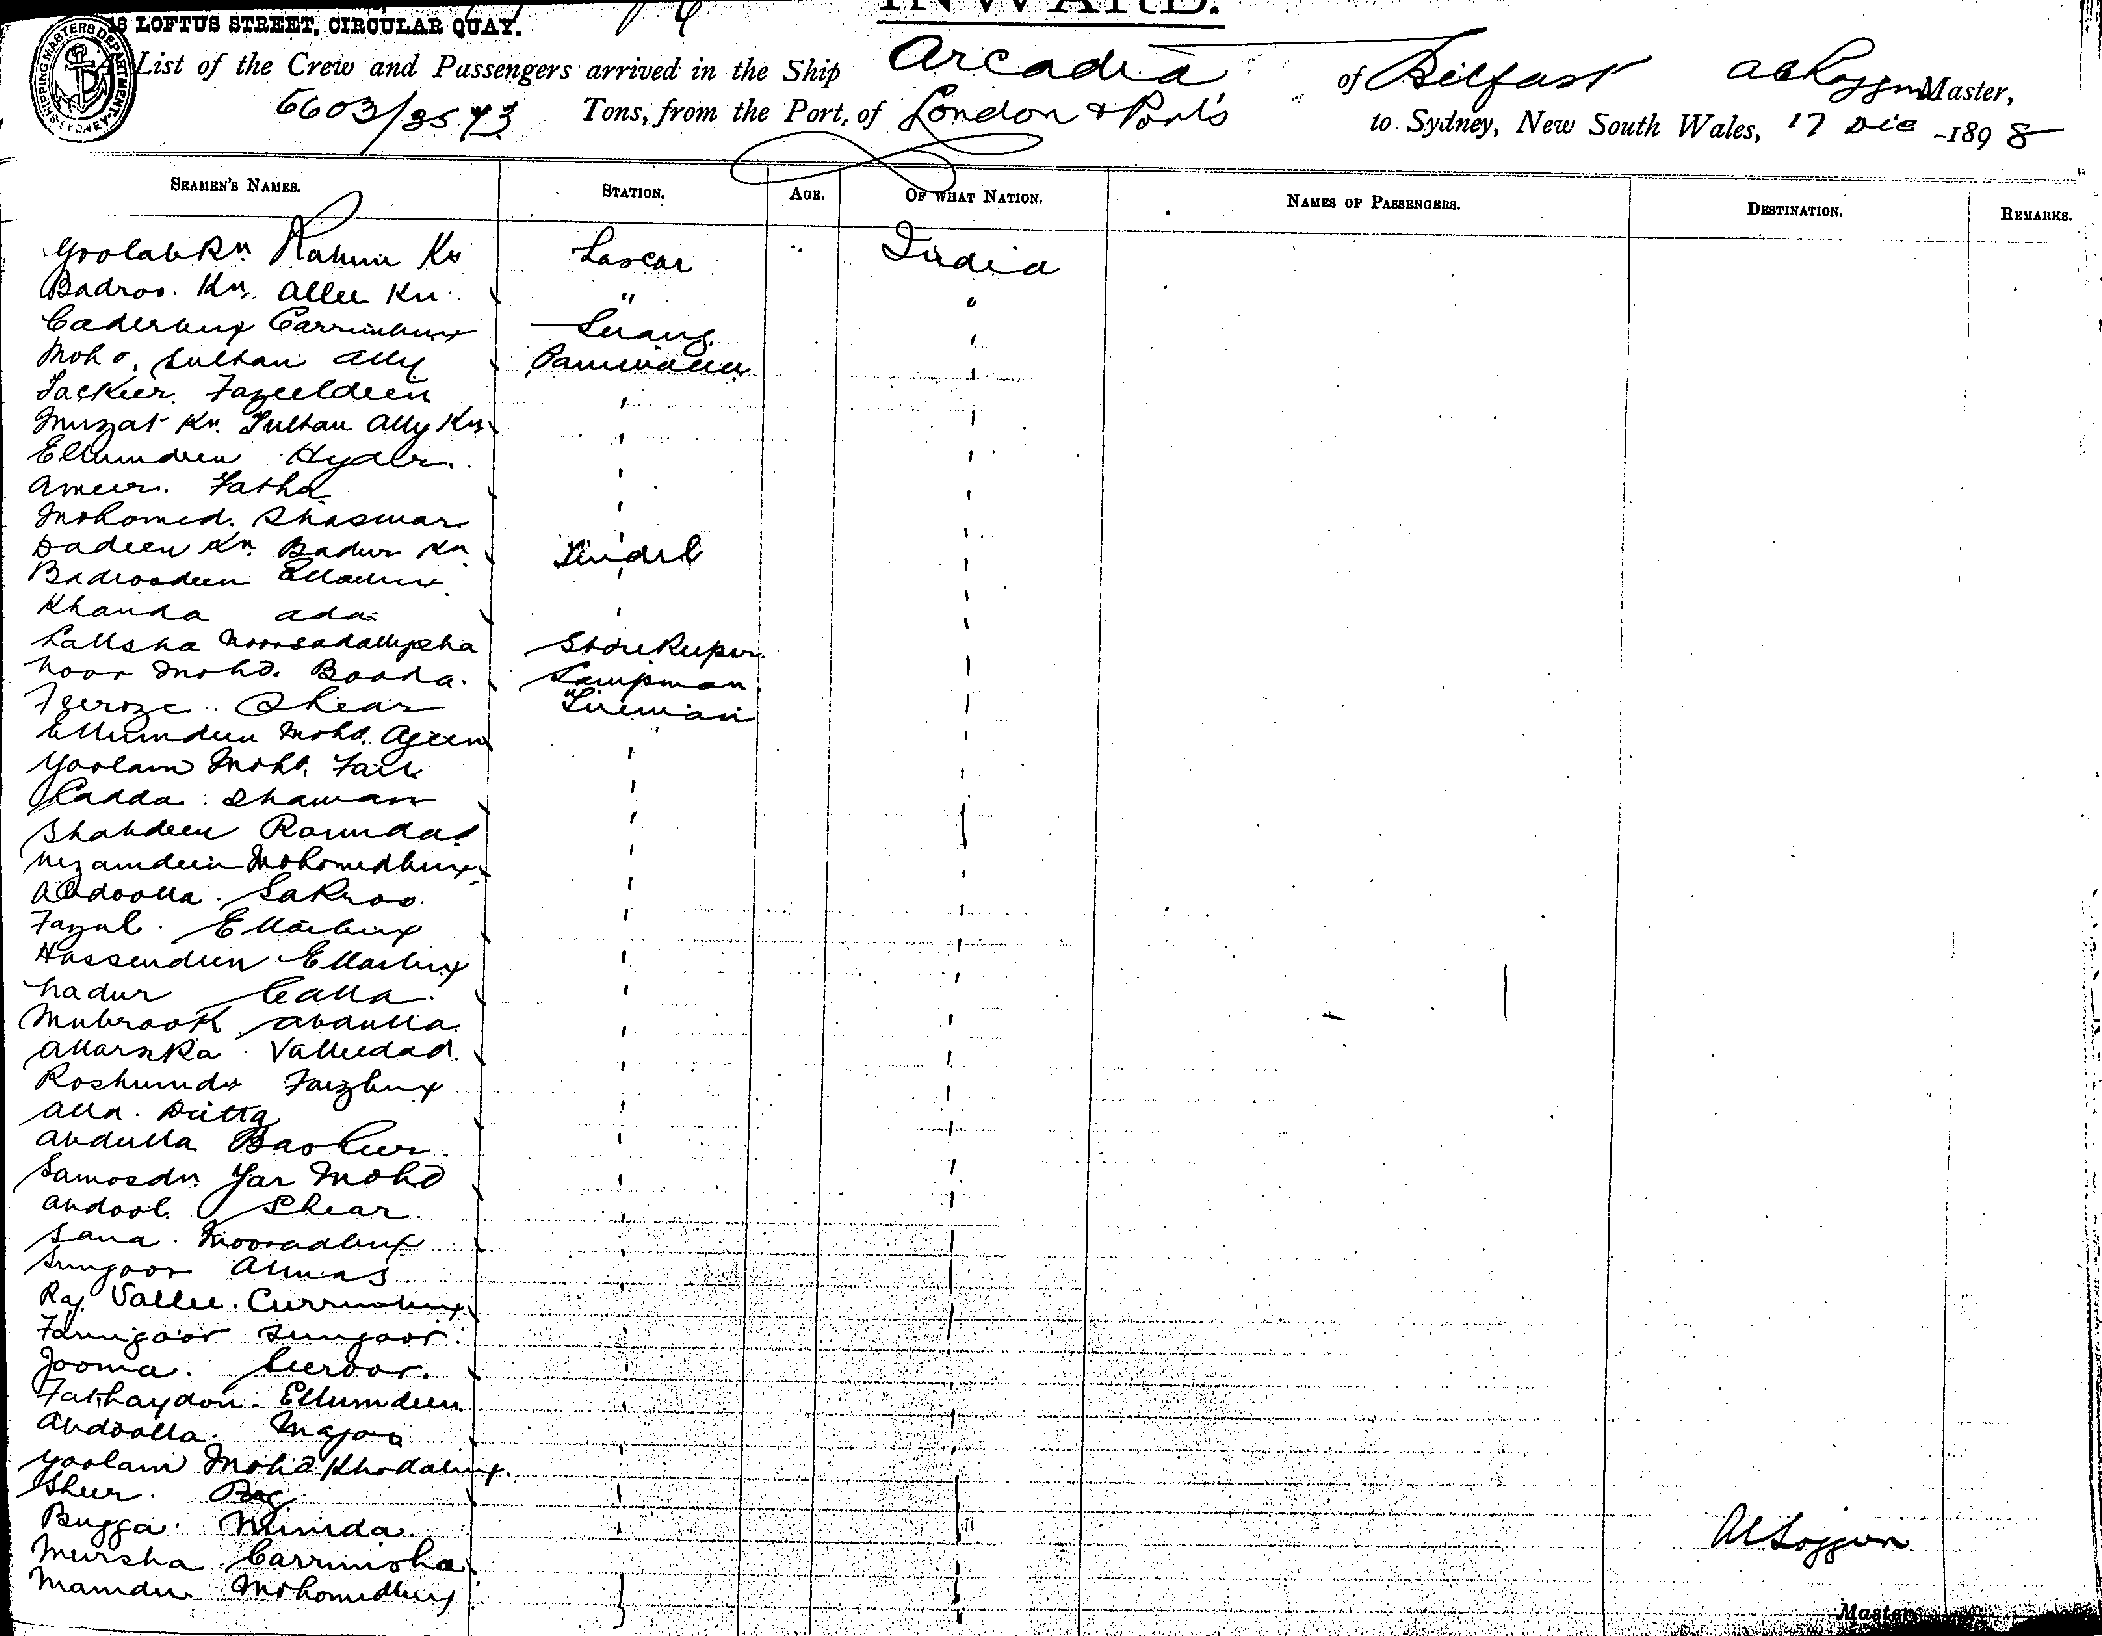 INWARD.
18 LOFTUS STREET, CIRCULAR QUAY.
A List of the Crew and Passengers arrived in the Ship Arcadia of Belfast Master,
6603/3573 Tons, from the Port of London & Ports to Sydney, New South Wales, 17 Dec 1898
SEAMEN'S NAMES. STATION. AGE. OF WHAT NATION. NAMES OF PASSENGERS. DESTINATION. REMARKS.
Goolab Kn Rahim Kn Lascar India
Badroo. Kn. Allee Kn. " "
Caderbux Carrimbux Serang
Moho. Sultan Ally Paniwalla
Fackeer. Fazeeldeen
Muzat Kn. Sultan Ally Kn
Ellumdeen Hyder.
Ameer. Fatha
Mohomed. Shaswar
Dadeen Kn. Badur Kn Tindal
Badroodeen
Khanda Ada
Lallsha Noorsadallysha Storekeeper
Noor Mohd. Booda. Lampman
Feeroze. Shear Fireman
Ellumdeen Mohd. Azeem
Goolam Mohd.
Cadda. Shawan
Shabdeen Ramdad
Nizamdeen Mohomedbux
Abdoolla. Sakroo.
Fazul. Ellaibux
Hassendeen Ellaibux
Nadur Calla.
Mubrook Abdulla
Allarzka. Valleedad.
Roshumdn Faizbux
Alla. Ditta
Abdulla
Samosdn Yar Mohd
Abdool. Shear.
Sana. Mooradbux
Sungoor Almas
Raj Vallee. Currimbux
Farrigoor Sungoor.
Jooma. Suroor.
Fathaydon. Ellumdeen
Abdoolla.
Goolam Mohd Khodabux.
Sheer. Bag
Bugga. Nunda.
Meersha Carrimsha
Mamdn Mohomedbux
Master